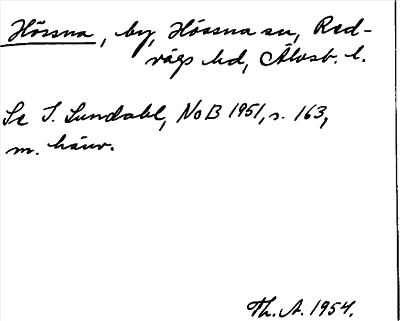 Hössna, by, Hössna sn, Red-
vägs hd, Älvsb. l.
Se I. Lundahl, NoB 1951, s. 163,
m. hänv.
Th. A. 1954.